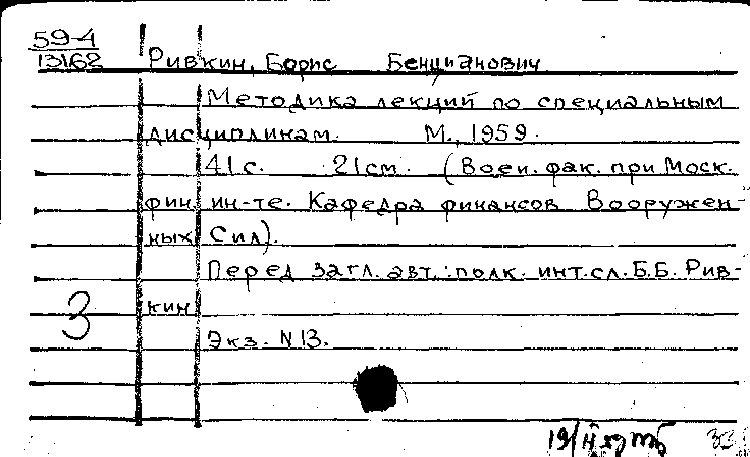 59-4
13162
Ривкин, Борис Бенцианович
Методика лекций по специальным
дисциплинам. М., 1959.
41 с. 21 см. (Воен. фак. при Моск.
фин. ин-те. Кафедра финансов Вооружен-
ных Сил).
Перед загл. авт.: полк. инт. сл. Б.Б. Рив-
кин
З
Экз. N 13.